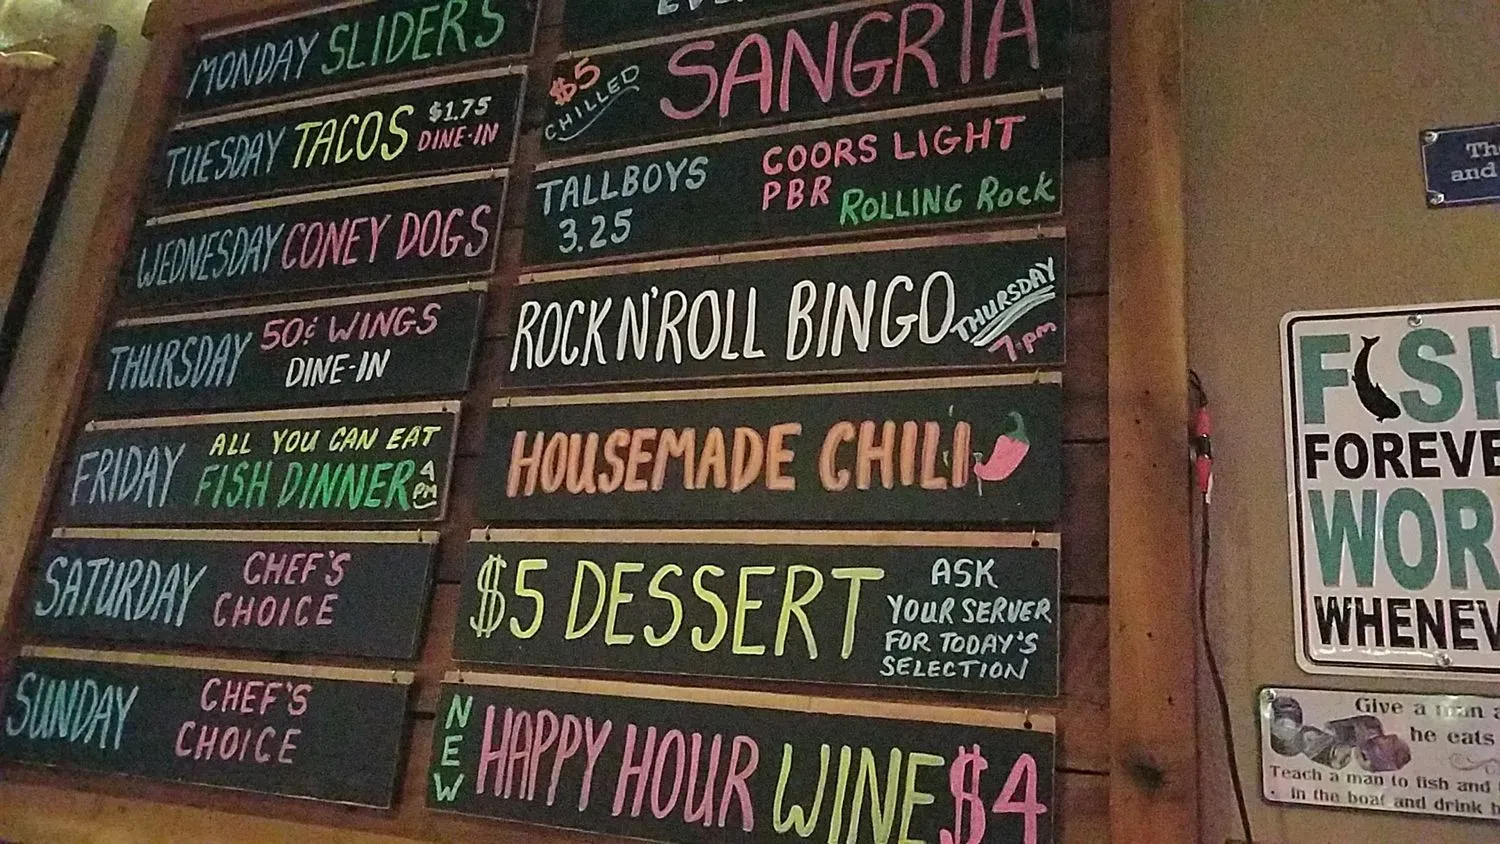 MONDAY SLIDERS
TUESDAY TACOS $1.75
DINE-IN
WEDNESDAY CONEY DOGS
THURSDAY 50¢ WINGS
DINE-IN
FRIDAY ALL YOU CAN EAT
FISH DINNER 4
PM
SATURDAY CHEF'S
CHOICE
SUNDAY CHEF'S
CHOICE
$5
CHILLED
SANGRIA
TALLBOYS
3.25
COORS LIGHT
PBR ROLLING ROCK
ROCK N' ROLL BINGO THURSDAY
7pm
HOUSEMADE CHILI
$5 DESSERT ASK
YOUR SERVER
FOR TODAY'S
SELECTION
NEW HAPPY HOUR WINE $4
and
FISH
FOREVE
WOR
WHENEV
Give a man a
he eats
Teach a man to fish and
in the boat and drink